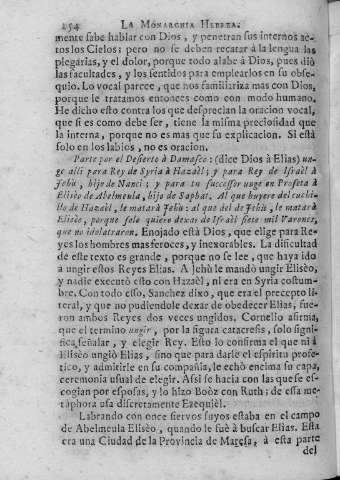 254 LA MONARCHIA HEBREA.
mente sabe hablar con Dios, y penetran sus internos ac-
tos los Cielos; pero no se deben recatar à la lengua las
plegarias, y el dolor, porque todo alabe à Dios, pues diò
las facultades, y los sentidos para emplearlos en su obse-
quio. Lo vocal parece, que nos familiariza mas con Dios,
porque le tratamos entonces como con modo humano.
He dicho esto contra los que desprecian la oracion vocal,
que si es como debe ser, tiene la misma preciosidad que
la interna, porque no es mas que su explicacion. Si està
solo en los labios, no es oracion.
Parte por el Desierto à Damasco: (dice Dios à Elias) un-
ge alli para Rey de Syria à Hazaèl; y para Rey de Israèl à
Jehù, hijo de Namsi; y para tu successor unge en Profeta à
Elisèo de Abelmeula, hijo de Saphat. Al que huyere del cuchi-
llo de Hazaèl, le matarà Jehù: al que del de Jehù, le matarà
Elisèo, porque solo quiero dexar de Israèl siete mil Varones,
que no idolatraron. Enojado està Dios, que elige para Re-
yes los hombres mas feroces, y inexorables. La dificultad
de este texto es grande, porque no se lee, que haya ido
à ungir estos Reyes Elias. A Jehù le mandò ungir Elisèo,
y nadie executò esto con Hazaèl, ni era en Syria costum-
bre. Con todo esso, Sanchez dixo, que era el precepto li-
teral, y que no pudiendole dexar de obedecer Elias, fue-
ron ambos Reyes dos veces ungidos. Cornelio afirma,
que el termino ungir, por la figura catacresis, solo signi-
fica, señalar, y elegir Rey. Esto lo confirma el que ni à
Elisèo ungiò Elias, sino que para darle el espiritu profe-
tico, y admitirle en su compañia, le echò encima su capa,
ceremonia usual de elegir. Assi se hacia con las que se es-
cogian por esposas, y lo hizo Boòz con Ruth; de essa me-
taphora usa discretamente Ezequièl.
Labrando con once siervos suyos estaba en el campo
de Abelmeula Elisèo, quando le fuè à buscar Elias. Esta
era una Ciudad de la Provincia de à esta parte
del